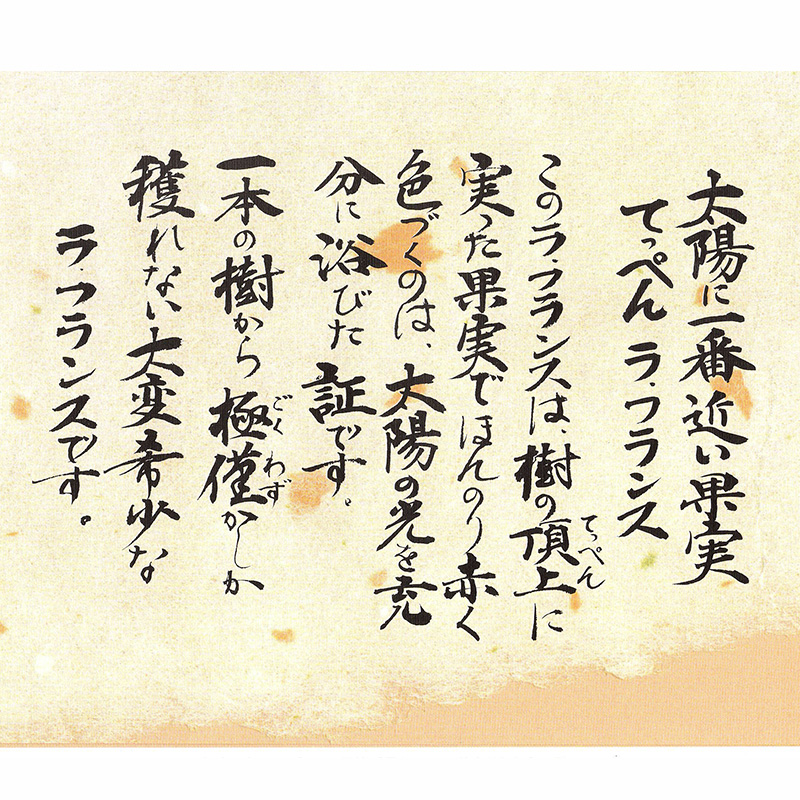 太陽に一番近い果実
てっぺん ラ・フランス
このラ・フランスは、樹の頂上に
てっぺん
実った果実でほんのり赤く
色づくのは、太陽の光を充
分に浴びた証です。
一本の樹から極僅かしか
ごくわずか
穫れない大変希少な
ラ・フランスです。